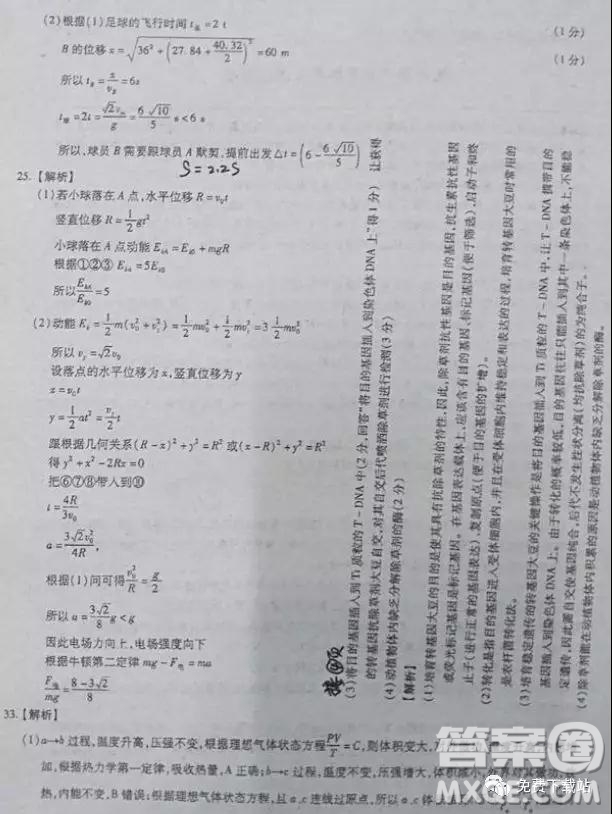 (2)根据(1)足球的飞行时间 t球=2 t (1分)
B 的位移 x=√(36²+(27.84+40.32/2)²)=60 m (1分)
所以 t_B=x/v_B=6s
t球=2t=√2v₀/g=6√10/5 s<6 s
所以,球员 B 需要跟球员 A 默契,提前出发△t=(6-6√10/5)
S=2.2S
25.【解析】
(1)若小球落在 A 点,水平位移 R=v₀t
竖直位移 R=1/2gt²
小球落在 A 点动能 E_kA=E_k0+mgR
根据①②③ E_kA=5E_k0
所以E_kA/E_k0=5
(2)动能 E_k=1/2m(v₀²+v_y²)=1/2mv₀²+1/2mv_y²=3 1/2mv₀²
所以 v_y=√2v₀
设落点的水平位移为 x,竖直位移为 y
x=v₀t
y=1/2at²=v_y/2t
跟根据几何关系(R-x)²+y²=R²或(x-R)²+y²=R²
得 y²+x²-2Rx=0
把⑥⑦⑧带入到⑩
t=4R/3v₀
a=3√2v₀²/4R,
根据(1)问可得v₀²/R=g/2
所以 a=3√2/8g<g
因此电场力向上,电场强度向下
根据牛顿第二定律 mg-F电=ma
F电/mg=8-3√2/8
33.【解析】
(1)a→b 过程,温度升高,压强不变,根据理想气体状态方程PV/T=C,则体积变大,
加,根据热力学第一定律,吸收热量,A 正确;b→c 过程,温度不变,压强增大,体积减小,
热,内能不变,B 错误;根据理想气体状态方程,且 a、c 连线过原点,所以 a、c 体
(3)将目的基因插人到 Ti 质粒的 T-DNA 中(2分,回答"将目的基因插人到染色体DNA 上"得1分) 让获得
的转基因抗除草剂大豆自交,对其自交后代喷洒除草剂进行检测(3分)
(4)动植物体内缺乏分解除草剂的酶(2分)
【解析】
(1)培育转基因大豆的目的是使其具有抗除草剂的特性,因此,除草剂抗性基因是目的基因,抗生素抗性基因
或荧光标记基因是标记基因。在基因表达载体上,应该含有目的基因、标记基因(便于筛选)、启动子和终
止子(进行正常的基因表达)、复制原点(便于目的基因的扩增)。
(2)转化是指目的基因进入受体细胞内,并且在受体细胞内维持稳定和表达的过程,培育转基因大豆时常用的
是农杆菌转化法。
(3)培育稳定遗传的转基因大豆的关键操作是将目的基因插人到 Ti 质粒的 T-DNA 中,让 T-DNA 携带目的
基因插人到染色体 DNA 上。由于转化的概率较低,目的基因往往只能插人到其中一条染色体上,不能稳
定遗传,因此需自交使基因纯合,后代不发生性状分离(均抗除草剂)的为纯合子。
(4)除草剂能在动植物体内积累的原因是动植物体内缺乏分解除草剂的酶。
答案圈
免费下载站
MXQE.COM